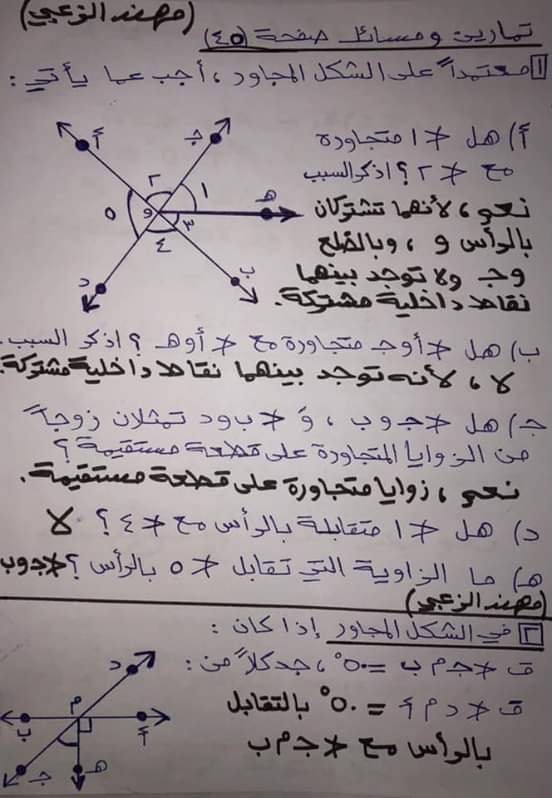 (مهند الزعبي)
تمارين ومسائل صفحة (٤٥)
١ معتمداً على الشكل المجاور، أجب عما يأتي:
أ) هل ∢١ متجاورة
مع ∢٢؟ اذكر السبب
نعم، لأنهما تشتركان
بالرأس و، وبالضلع
وجـ ولا توجد بينهما
نقاط داخلية مشتركة.
أ
جـ
٢
١
هـ
٥
و
٣
٤
د
ب
ب) هل ∢أوجـ متجاورة مع ∢أوهـ؟ اذكر السبب.
لا، لأنه توجد بينهما نقاط داخلية مشتركة.
جـ) هل ∢جـوب، و ∢بود تمثلان زوجاً
من الزوايا المتجاورة على قطعة مستقيمة؟
نعم، زوايا متجاورة على قطعة مستقيمة.
د) هل ∢١ متقابلة بالرأس مع ∢٤؟ لا
هـ) ما الزاوية التي تقابل ∢٥ بالرأس؟ ∢جوب
(مهند الزعبي)
٢ في الشكل المجاور إذا كان:
ق ∢جـ م ب = ٥٠°، جد كلاً من:
ق ∢د م أ = ٥٠° بالتقابل
بالرأس مع ∢جـ م ب
د
م
ب
أ
جـ
هـ